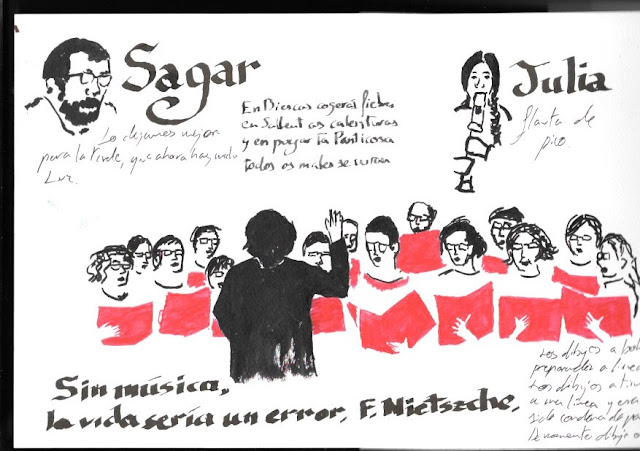 Sagar
Lo dejamos mejor
para la tarde, que ahora hay mala
Luz.
En Biescas cogerás fiebre
en Sallent as calenturas
y en pugar ta Panticosa
todos os males se curan
Julia
flauta de
pico.
Sin música,
la vida sería un error, F. Nietszche,
Los dibujos a
preparados a línea
Los dibujos a
a una línea y
De momento dibujo